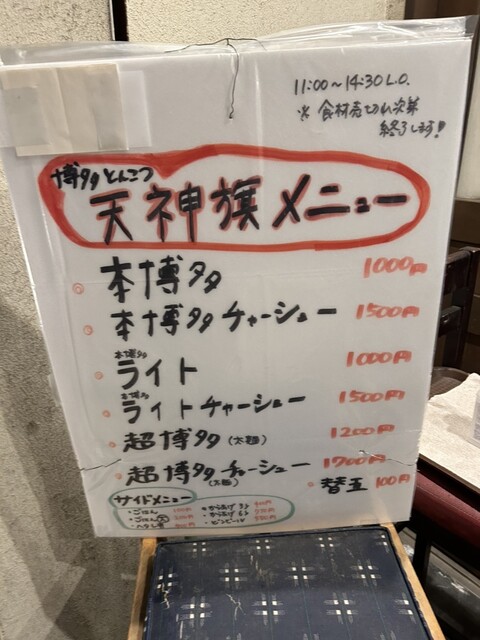 11:00〜14:30 L.O.
※食材売切れ次第
終了します!
博多とんこつ
天神旗メニュー
本博多 1000円
本博多チャーシュー 1500円
本博多
ライト 1000円
本博多
ライトチャーシュー 1500円
超博多(太麺) 1200円
超博多チャーシュー 1700円
(太麺)
替玉 100円
サイドメニュー
・ごはん
・ごはん大
・からあげ3ヶ
・からあげ